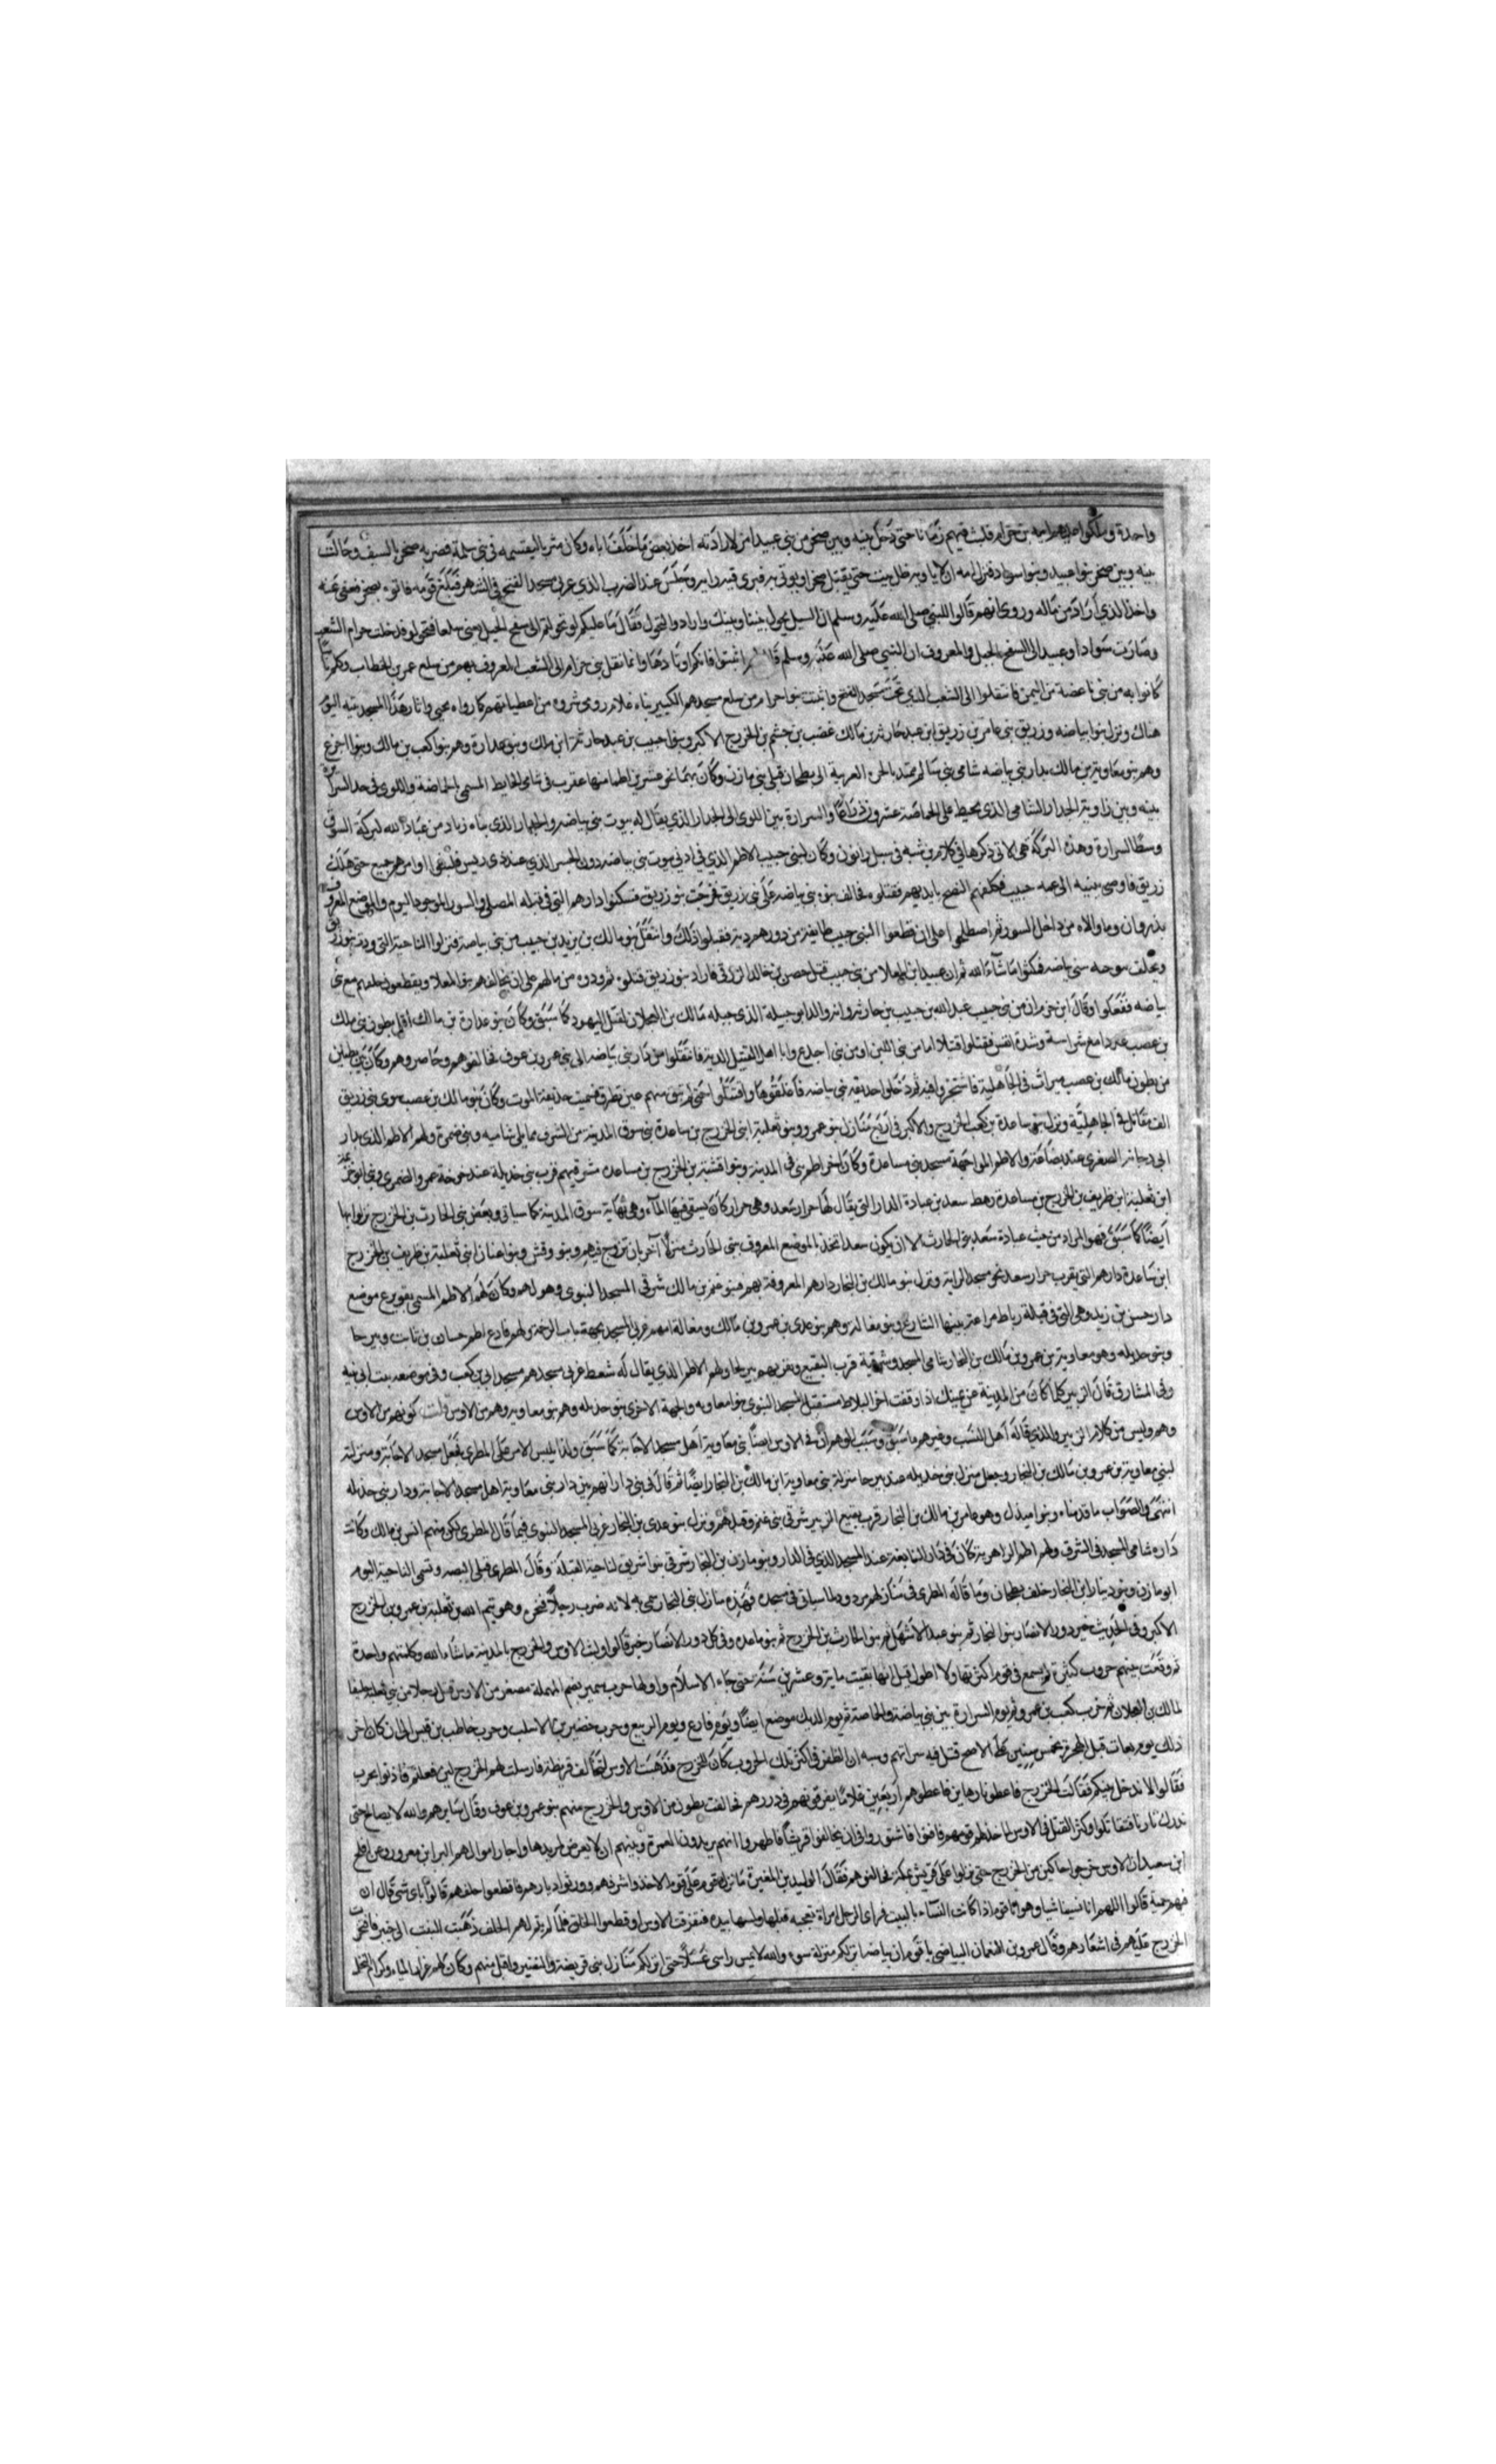 واحدة وملكوا عليهم امه بن حرام فلبث فيهم زمانا حتى دخل بينه وبين صخر من بني عبيد امر لارادته اخذ بعض ما خلف اباه وكان مثريا ليقسمه في بني سلمة فضربه صخر بالسيف وحالت
بينه وبين صخر بنوا عبيد وبنوا سواد فنزل امه ان لا ياويه ظل بيت حتى يقتل صخرا او يوتى به فيرى فيه رايه وجلس عند الضرب الذي غربي مسجد الفتح في الشمس فبلغ قومه فاتوه بصخر فعفى عنه
واخذ الذي اراد من ماله وروى انهم قالوا للنبي صلى الله عليه وسلم ان السيل يحول بيننا وبينك وارادوا التحول فقال ما عليكم لو تحولتم الى سفح الجبل يعني سلعا فتحولوا فدخلت حرام الشعب
وصارت سواد او عبيد الى السفح والجبل والمعروف ان النبي صلى الله عليه وسلم قال لهم اثبتوا فانكم اوتادها وانما نقل بني حرام الى الشعب المعروف بهم من سلع عمر بن الخطاب وكلم ناسا
كانوا به من بني ناعضة من اليمن فانتقلوا الى الشعب الذي تحت مسجد الفتح واثبت بنوا حرام من سلع مسجدهم الكبير بناه غلام رومي شروه من اعطياتهم كما رواه يحيى واثار هذا المسجد بينه اليوم
هناك ونزل بنوا بياضه وزريق بني عامر بن زريق ابن عبد حارثه بن مالك غضب بن جشم بن الخزرج الاكبر وبنوا حبيب بن عبد حارثة ابن مالك وبنو عدارة وهم بنوا كعب بن مالك وبنوا اجدع
وهم بنو معاوية بن مالك بدار بني بياضه شامي بني سالم ممتد بالحرة الغربية الى بطحان قبلي بني مازن وكان بها نحو عشرين اطما منها عقرب في شامي الحايط المسمى الحاضة واللوى في حد السرارة
بينه وبين زاوية الجدار الشامي الذي يحيط على الحاضة عشرون ذراعا والسرارة بين اللوى الى الجدار الذي يقال له بيوت بني بياضه والجدار الذي بناه زياد من عباد الله لبركة السوق
وسط السرارة وهذه البركة هي الاتي ذكرها في كلام بن شبه في سيل رانون وكان لبني حبيب الاطم الذي في ادني بيوت بني بياضه دون الجسر الذي عند ذي ريش فلبثوا وامرهم جميع حتى هلك
زريق فاوصى ببنيه الى عمه حبيب فكلفهم النضح بايديهم فقتلوه فحالف بنو بني بياضه على بني زريق فخرجت بنو زريق فسكنوا دارهم التي في قبله المصلى والسور الموجود اليوم والموضع المعروف
بذروان وما والاه من داخل السور ثم اصطلحوا على ان يقطعوا البني حبيب طايفة من دورهم دية فقبلوا ذلك وانتقل بنو مالك بن يزيد بن حبيب من بني بياضه فنزلوا الناحية التي ودته بنو زريق
بني بياضه فمكثوا ما شاء الله ثم ان عبيد ابن المعلا من بني حبيب قتل حصن بن خالد الزرقي فاراد بنو زريق قتلوه ثم ودوه من مالهم على ان يحالفهم بنوا المعلا ويقطعوا حلفهم مع بني
بياضه ففعلوا وقال ابن حزم ان من بني حبيب عبد الله بن حبيب بن حارثه وانه والد ابو جبيلة الذي جبله مالك بن العجلان لقتل اليهود كما سبق وكان بنو عدارة بن مالك اقل بطون بني مالك
بن عصب عددا مع شراسة وشدة انفس فقتلوا قتلا اما من بني اللبن او من بني اجدع وابا اهل القتيل الدية فانتقلوا من دار بني بياضه الى بني عمرو بن عوف فحالفوهم وصاهروهم وكان بين بطنين
من بطون مالك بن عصب ميراث في الجاهلية فاشتجروا فيه ثم دخلوا حديقه بني بياضه فاغلقوها واقتتلوا حتى لم يبق منهم عين تطرق فسميت حديقة الموت وكان بنو مالك بن عصب سوى بني زريق
الف مقاتل في الجاهلية ونزل بنو ساعدة بن كعب الخزرج الاكبر في اربع منازل بنو عمرو وبنو ثعلبة ابني الخزرج بن ساعدة بني سوق المدينة من الشرق مما يلي شاميه وبني ضمرة ولهم الاطم الذي بدار
ابي دجانه الصغرى عند بضاعة والاطم المواجهة مسجد بني ساعدة وكان اخر اطم بني في المدينة وبنوا قشبة بن الخزرج بن ساعده شرقيهم قرب بني حديلة عند خوخة عمرو الضمري وبني ابو خزيمة
ابن ثعلبة ابن طريف بن الخزرج بن ساعدة رهط سعد بن عبادة الدار التي يقال لها جرار سعد وهي جرار كان يسقى فيها الماء وهي نهاية سوق المدينة كما سياتي وبعض بني الحارث بن الخزرج نزلوا بها
ايضا كما سبق فهو المراد من بيت عبادة سعد بني الحارث الا ان يكون سعدا تخذ الموضع المعروف ببني الحارث منزلا اخر بان تزوج فيهم وبنو وقش وبنوا عنان ابني ثعلبة بن طريف بن الخزرج
ابن ساعدة دارهم التي بقرب جرار سعد نحو مسجد الراية ونزل بنو مالك بن النجار دارهم المعروفة بهم فبنو غنم بن مالك شرقي المسجد النبوي وهو لهم وكان لهم الاطم المسمى بفويرع موضع
دار حسن بن زيد وهي التي في قبلة رباط مراغة بينها الشارع وبنو مغالة وهم بنو عدي بن عمرو بن مالك ومغالة امهم غربي المسجد بجهة باب الرحمة ولهم فارع اطم حسان بن ثابت وبيرحا
وبنو حديله وهو معاوية بن عمرو بن مالك بن النجار شامي المسجد وشرقية قرب البقيع وبقربهم بيرحا ولهم الاطم الذي يقال له شعط غربي مسجدهم مسجد ابي بن كعب وفي موضعه بيت ابي نبيه
وفي المشارق قال الزبير كلما كان من المدينة عن يمينك اذا وقفت اخر البلاط مستقبل المسجد النبوي بنوا مغاله والجهة الاخرى بنو حديله وهم بنو معاويه وهم من الاوس قلت كونهم من الاوس
وهم وليس من كلام الزبير والذي قاله اهل النسب وغيرهم ما سبق وسبب الوهم ان في الاوس ايضا بني معاوية اهل مسجد الاجابة كما سبق ولذا يلبس الامر على المطري فجعل مسجد الاجابة ومنزلة
لبني معاوية بن عمرو بن مالك بن النجار وجعل منزل بني حديله عند بيرحا منزلة بني معاوية ابن مالك بن النجار ايضا ثم قال في بني دارا نهم بين دار بني معاوية اهل مسجد الاجابة ودار بني حديله
انتهى والصواب ما قدمناه وبنوا مبذول وهو عامر بن مالك بن النجار قرب بقيع الزبير شرقي بني غنم وقبلهم ونزل بنو عدي بن النجار غربي المسجد النبوي فيما قال المطري لكون منهم انس بن مالك وكانت
داره شامي المسجد في الشرق ولهم اطم الزاهرية كان في دار النابغة عند المسجد الذي في الدار وبنو مازن بن النجار شرقي بنوا شريق لناحية القبلة وقال المطري قبلي البصه وتسمى الناحية اليوم
ابو مازن وبنو دينار ابن النجار خلف بطحان وما قاله المطري في منازلهم مردود لما سياتي في مسجده فهذه منازل بني النجار سمي به لانه ضرب رجلا فنجره وهو تيم الله بن ثعلبة بن عمرو بن الخزرج
الاكبر وفي الحديث خير دور الانصار بنوا النجار ثم بنو عبد الاشهل ثم بنوا الحارث بن الخزرج ثم بنو ساعده وفي كل دور الانصار خير قالوا ولبث الاوس والخزرج بالمدينة ما شاء الله وكلمتهم واحدة
ثم وقعت بينهم حروب كثيرة لم يسمع في قوم اكثر منها ولا اطول قيل انها بقيت ماية وعشرين سنة حتى جاء الاسلام واولها حرب سمير بضم المهملة مصغر من الاوس قتل رجلا من بني ثعلبة حليفا
لمالك بن العجلان ثم حرب كعب بن عمرو ثم يوم السرارة بين بني بياضة والحاضة ثم يوم الديك موضع ايضا ويوم فارع ويوم الربيع وحرب حضير بن الاسلت وحرب حاطب بن قيس الى ان كان اخر
ذلك يوم بعاث قبل الهجرة بخمس سنين على الاصح قتل فيه سراتهم وسببه ان الظفر في اكثر تلك الحروب كان للخزرج فذهبت الاوس لتحالف قريظة فارسلت لهم الخزرج لئن فعلتم فاذنوا بحرب
فقالوا لا ندخل بينكم فقالت الخزرج فاعطونا رهاين فاعطوهم اربعين غلاما يفرقونهم في دورهم فحالفت بطون من الاوس والخزرج منهم بنو عمرو بن عوف وقال سايرهم والله لا يصالح حتى
ندرك ثارنا فتقاتلوا وكثر القتل في الاوس لما خذلهم قومهم فاشتوروا في ان يحالفوا قريشا فاظهروا انهم يريدون العمرة وبينهم ان لا يعرض لمريدها واجار اموالهم البرا بن معرور وعن افلح
ابن سعيد ان الاوس خرجوا جالين من الخزرج حتى نزلوا على قريش بمكة فحالفوهم فقال الوليد بن المغيرة ما نزل قوم على قوم الا اخذوا شرفهم وورثوا ديارهم فاقطعوا حلفهم قالوا باي شئ قال ان
فهم حمية قالوا اللهم انا نسينا شيا وهو انا قوم اذا كانت النساء بالبيت فراى الرجل امراة تعجبه قبلها ولمسها بيده فنفرت الاوس وقطعوا الحلف فلما لم يقر لهم الحلف ذهبت النبت الى خيبر فافتخرت
الخزرج عليهم في اشعارهم وقال عمرو بن النعمان البياضي يا قوم ان بياضه انزلكم منزلة سوء والله لا يمس راسي غسلا حتى انزلكم منازل بني قريظة والنضير واقتل منهم وكان لهم غزار المياه وكرام النخل